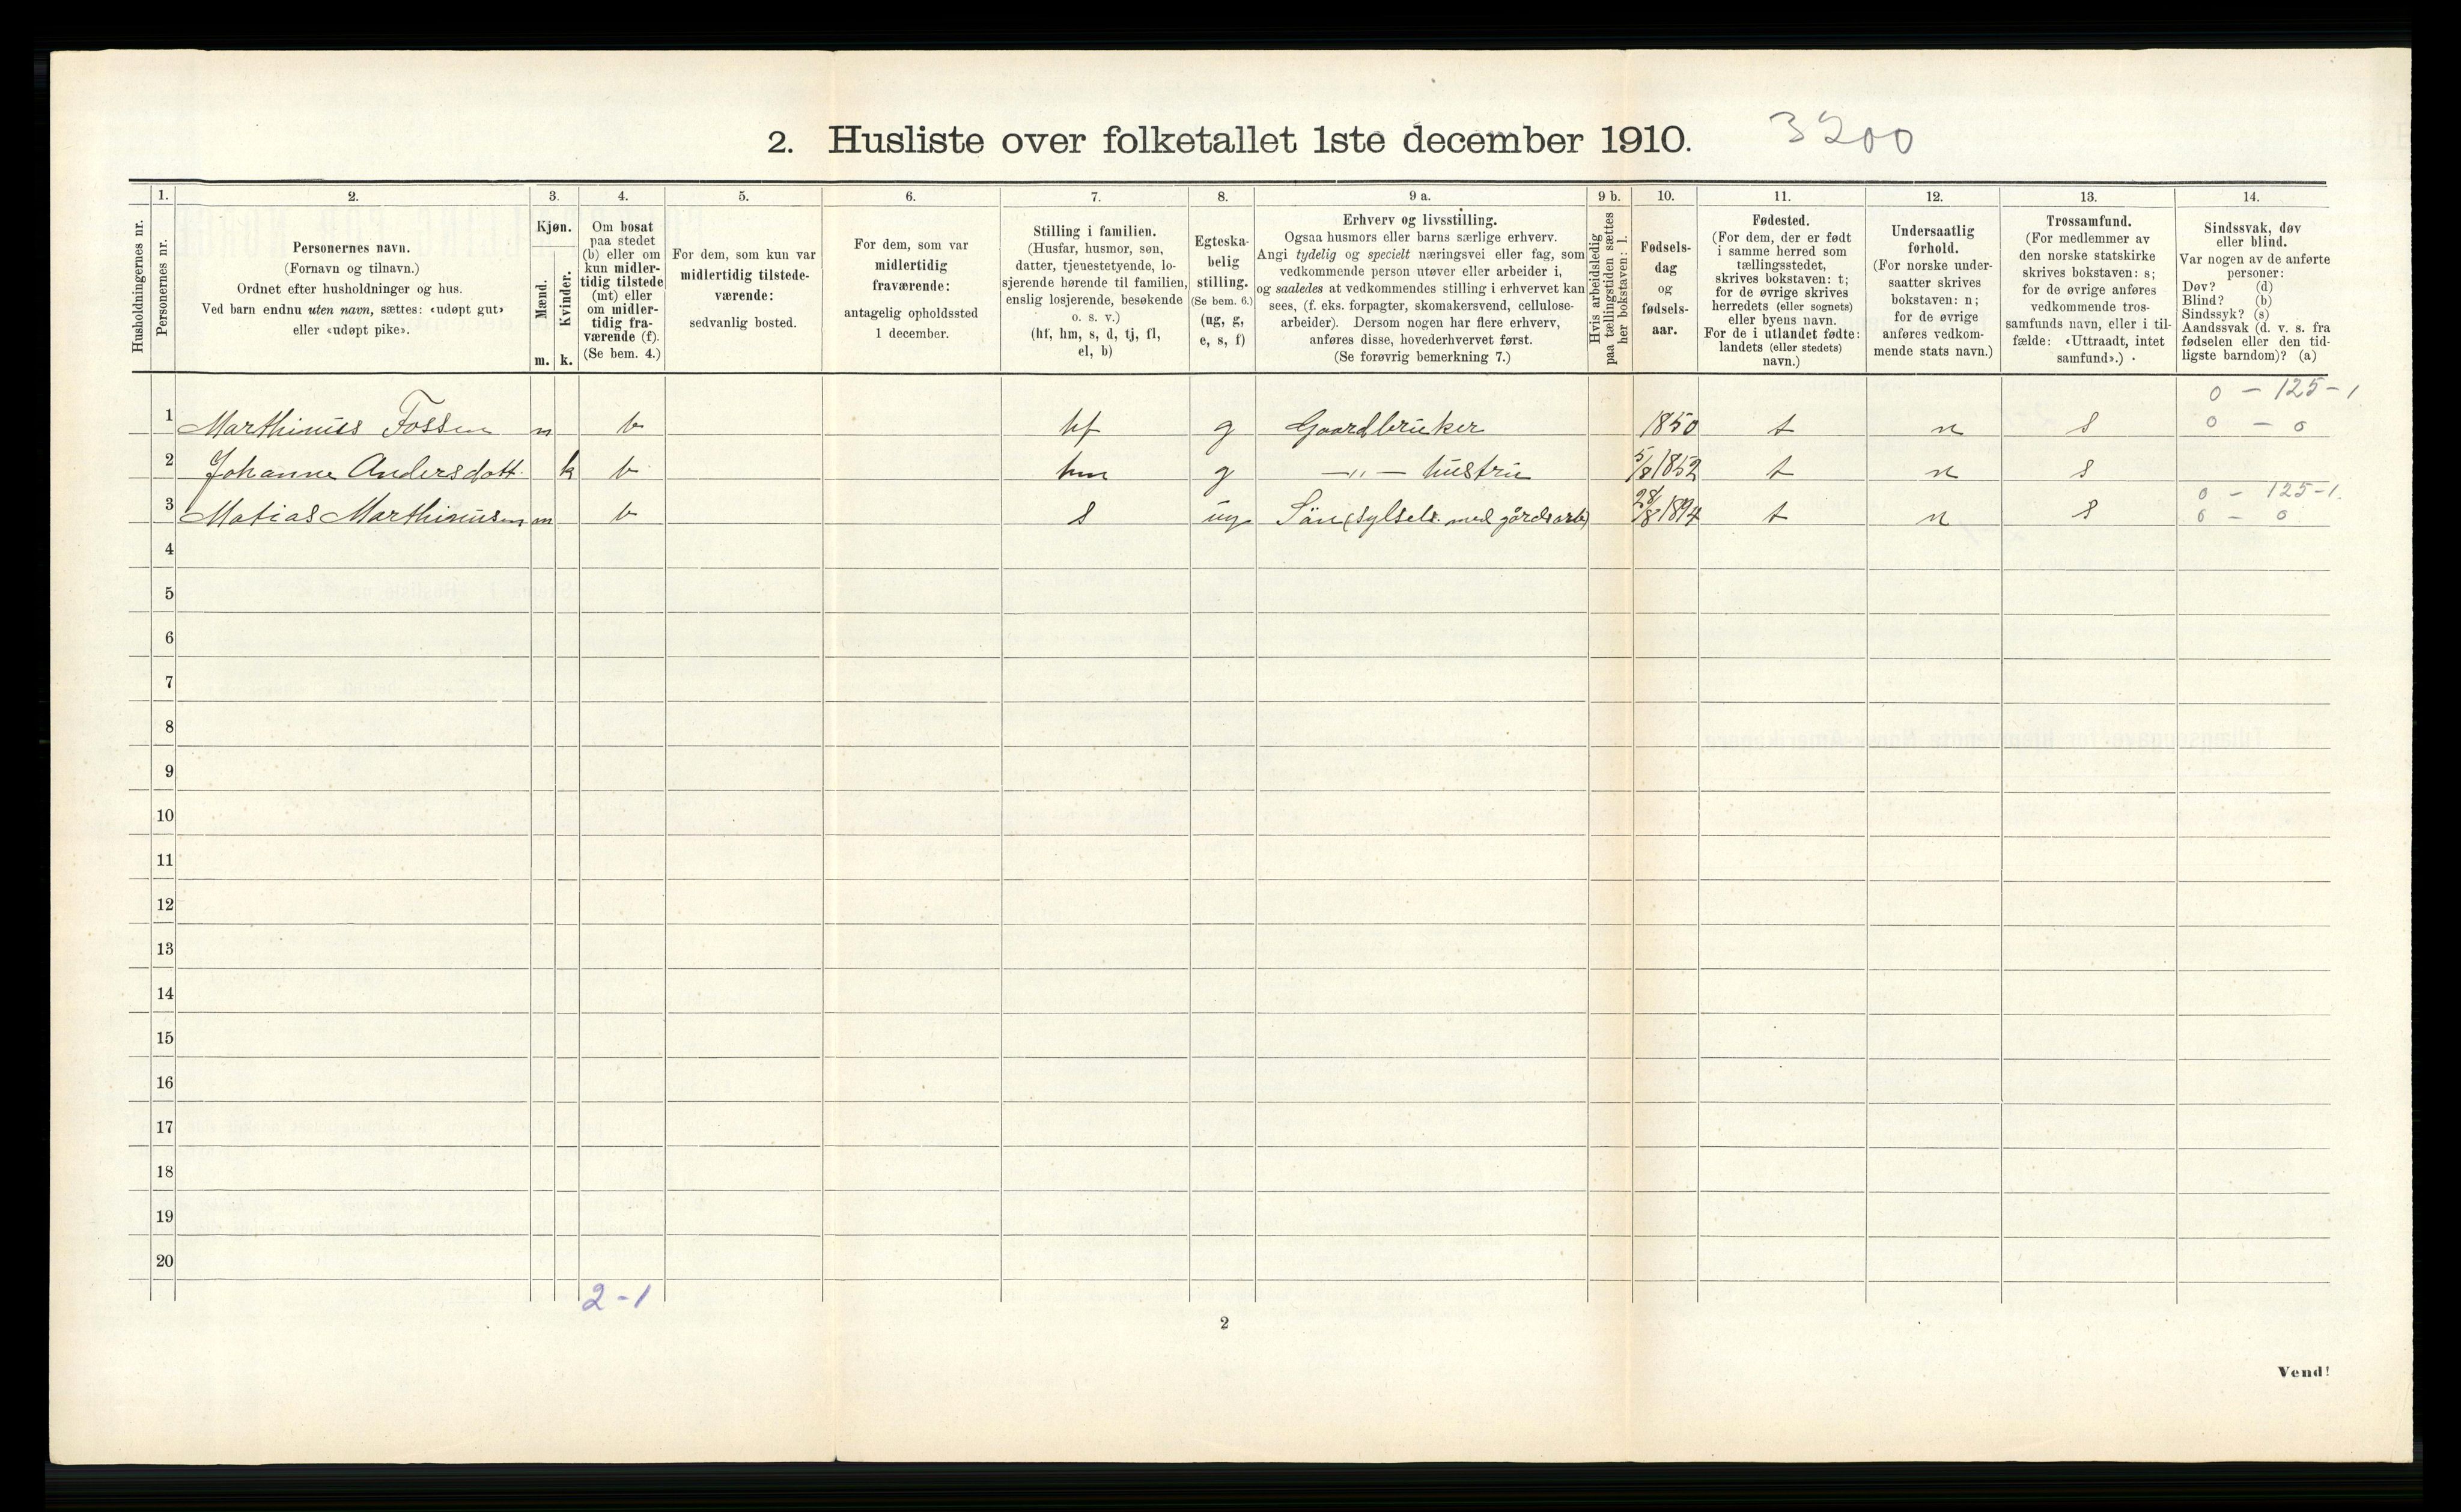 2. Husliste over folketallet 1ste december 1910. 3200
1. 2. 3. 4. 5. 6. 7. 8. 9 a. 9 b. 10. 11. 12. 13. 14.
Husholdningernes nr.
Personernes nr.
Personernes navn.
(Fornavn og tilnavn.)
Ordnet efter husholdninger og hus.
Ved barn endnu uten navn, sættes: «udøpt gut»
eller «udøpt pike».
Kjøn.
Mænd.
Kvinder.
m. k.
Om bosat
paa stedet
(b) eller om
kun midler-
tidig tilstede
(mt) eller
om midler-
tidig fra-
værende (f).
(Se bem. 4.)
For dem, som kun var
midlertidig tilstede-
værende:
sedvanlig bosted.
For dem, som var
midlertidig
fraværende:
antagelig opholdssted
1 december.
Stilling i familien.
(Husfar, husmor, søn,
datter, tjenestetyende, lo-
sjerende hørende til familien,
enslig losjerende, besøkende
o. s. v.)
(hf, hm, s, d, tj, fl,
el, b)
Egteska-
belig
stilling.
(Se bem. 6.)
(ug, g,
e, s, f)
Erhverv og livsstilling.
Ogsaa husmors eller barns særlige erhverv.
Angi tydelig og specielt næringsvei eller fag, som
vedkommende person utøver eller arbeider i,
og saaledes at vedkommendes stilling i erhvervet kan
sees, (f. eks. forpagter, skomakersvend, cellulose-
arbeider). Dersom nogen har flere erhverv,
anføres disse, hovederhvervet først.
(Se forøvrig bemerkning 7.)
Hvis arbeidsledig
paa tællingstiden sættes
her bokstaven: l.
Fødsels-
dag
og
fødsels-
aar.
Fødested.
(For dem, der er født
i samme herred som
tællingsstedet,
skrives bokstaven: t;
for de øvrige skrives
herredets (eller sognets)
eller byens navn.
For de i utlandet fødte:
landets (eller stedets)
navn.)
Undersaatlig
forhold.
(For norske under-
saatter skrives
bokstaven: n;
for de øvrige
anføres vedkom-
mende stats navn.)
Trossamfund.
(For medlemmer av
den norske statskirke
skrives bokstaven: s;
for de øvrige anføres
vedkommende tros-
samfunds navn, eller i til-
fælde: «Uttraadt, intet
samfund».)
Sindssvak, døv
eller blind.
Var nogen av de anførte
personer:
Døv? (d)
Blind? (b)
Sindssyk? (s)
Aandssvak (d. v. s. fra
fødselen eller den tid-
ligste barndom)? (a)
0 - 125-1
1 Marthinus Fossen m b hf g Gaardbruker 1850 t n s 0 - 0
2 Johanne Andersdott. k b hm g —"— hustru 5/8 1852 t n s
0 - 125-1.
3 Matias Marthinusen m b s ug Sön (sylsels. med gårdsarb) 28/8 1894 t n s 0 - 0
4
5
6
7
8
9
10
11
12
13
14
15
16
17
18
19
20
2-1
2
Vend!